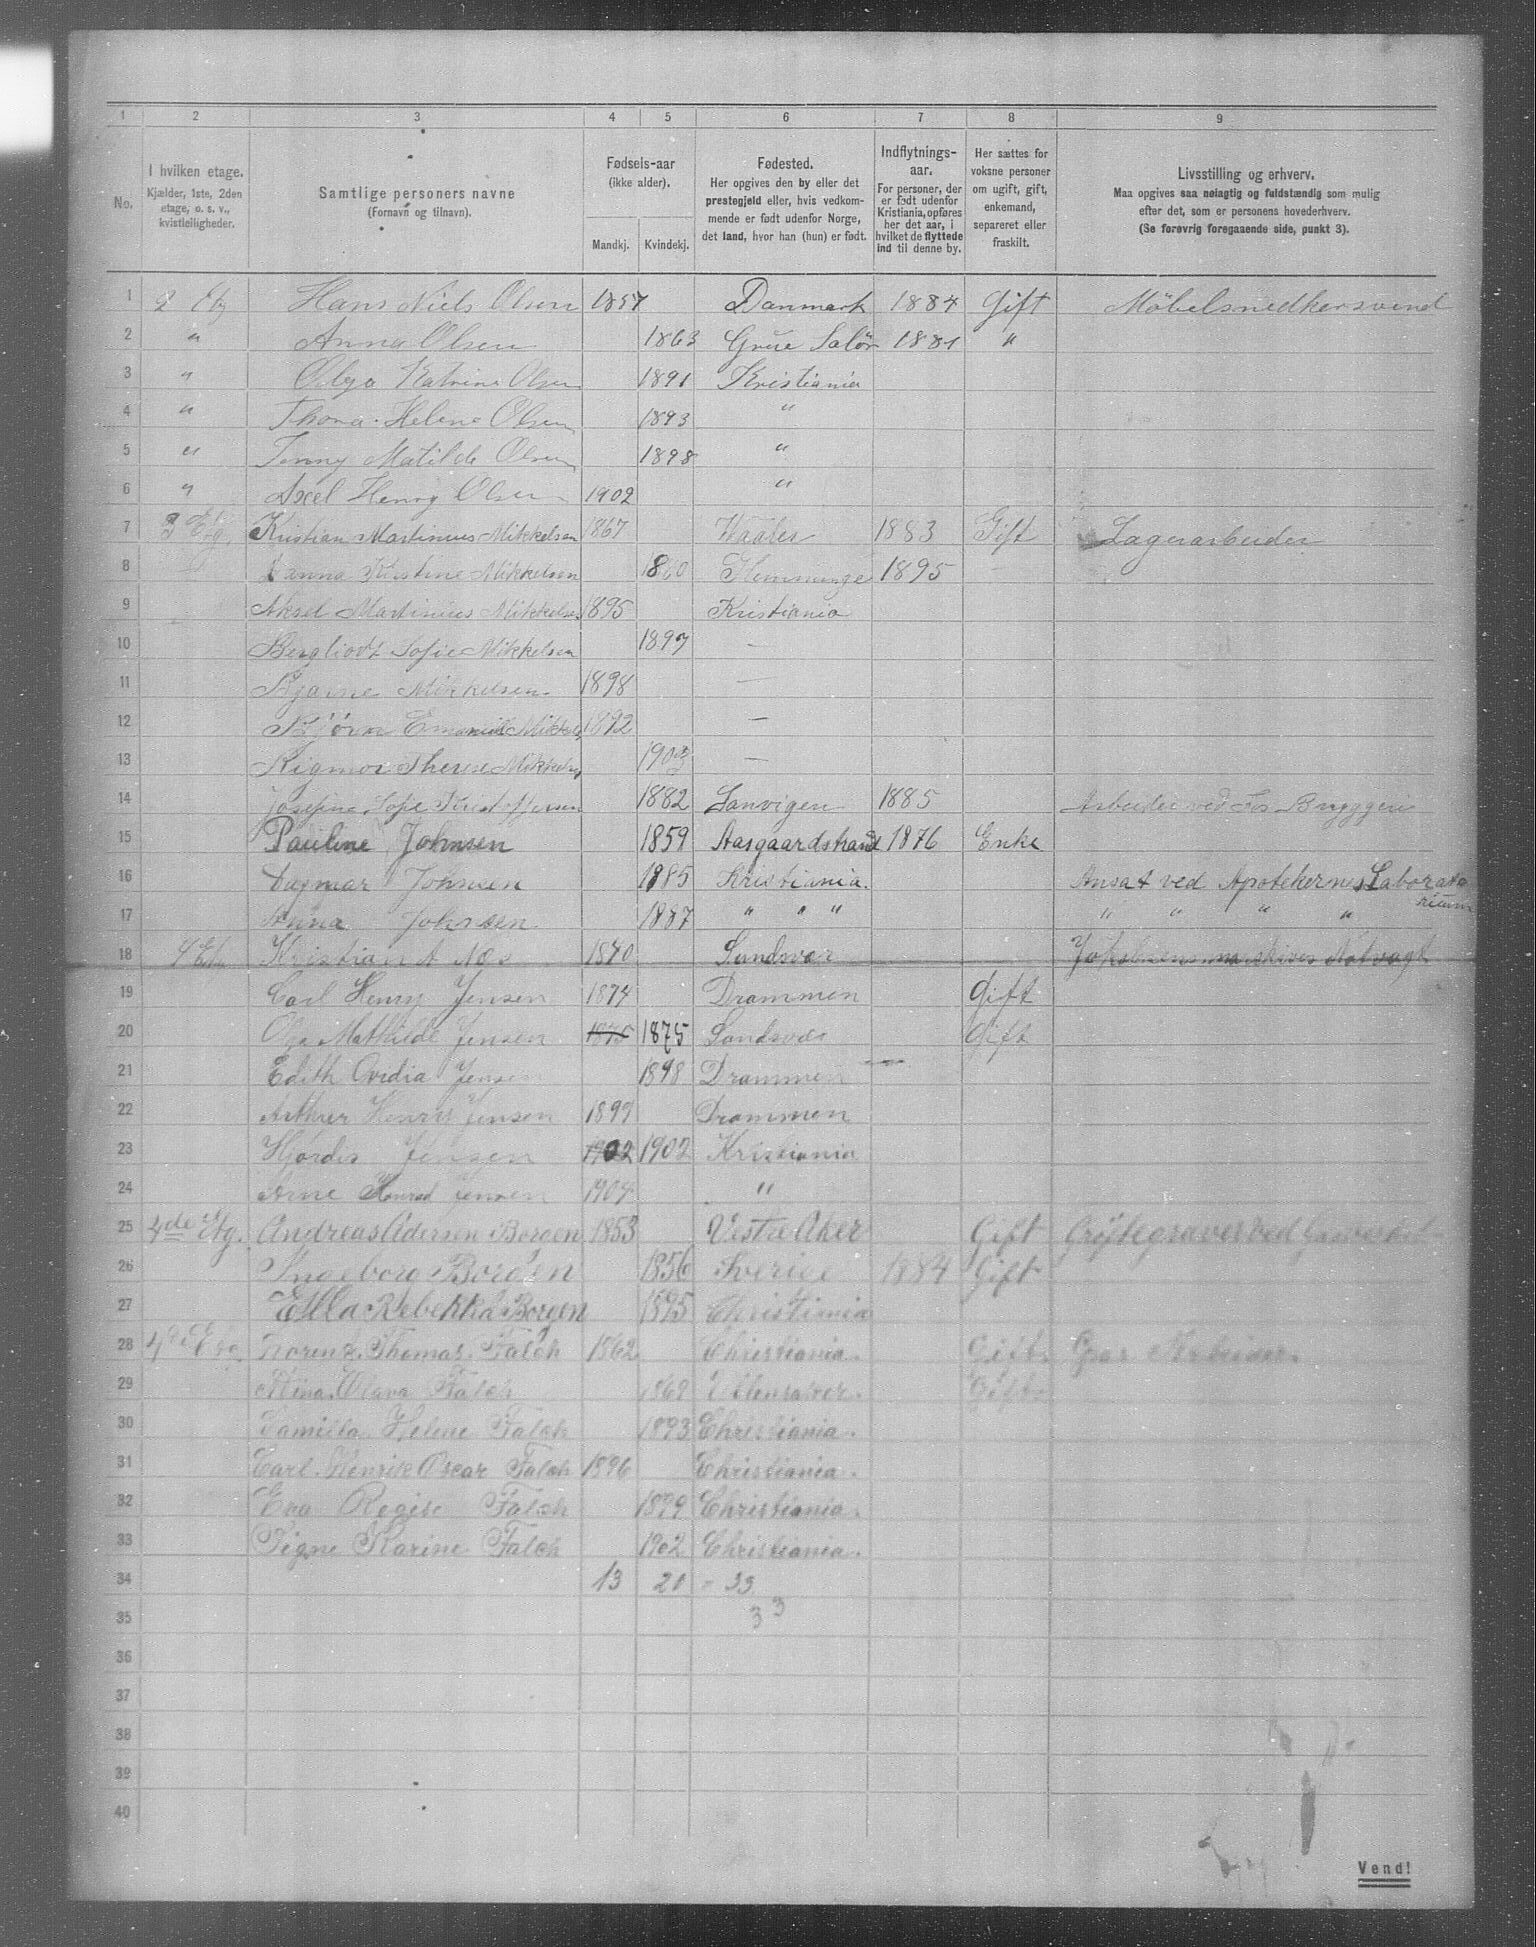 1 2 3 4 5 6 7 8 9
No.
I hvilken etage.
Kjælder, 1ste, 2den
etage, o. s. v.,
kvistleiligheder.
Samtlige personers navne
(Fornavn og tilnavn).
Fødsels-aar
(ikke alder).
Mandkj. Kvindekj.
Fødested.
Her opgives den by eller det
prestegjeld eller, hvis vedkom-
mende er født udenfor Norge,
det land, hvor han (hun) er født.
Indflytnings-
aar.
For personer, der
er født udenfor
Kristiania, opføres
her det aar, i
hvilket de flyttede
ind til denne by.
Her sættes for
voksne personer
om ugift, gift,
enkemand,
separeret eller
fraskilt.
Livsstilling og erhverv.
Maa opgives saa nøiagtig og fuldstændig som mulig
efter det, som er personens hovederhverv.
(Se forøvrig foregaaende side, punkt 3).
1 2 Etg Hans Niels Olsen 1857 Danmark 1884 Gift Møbelsnedkersvend
2 " Anna Olsen 1863 Grue Solør 1881 "
3 " Olga Katrine Olsen 1891 Kristiania
4 " Thora Helene Olsen 1893 "
5 " Jenny Matilde Olsen 1898 "
6 " Axel Henry Olsen 1902 "
7 3 Etg. Kristian Martinius Mikkelsen 1867 Vaaler 1883 Gift Lagerarbeider
8 Kristine Mikkelsen 1860 1895 -
9 Aksel Martinius Mikkelsen 1895 Kristiania
10 Bergliodt Sofie Mikkelsen 1897 -
11 Bjarne Mikkelsen 1898 -
12 Bjørn Emanuel Mikkels 1892 -
13 Rigmor Therese Mikkelsen 1903 -
14 Josefine Sofie Kristoffersen 1882 1885 Arbeider ved Bryggeri
15 Pauline Johnsen 1859 Aasgaardstrand 1876 Enke
16 Dagmar Johnsen 1885 Kristiania. Ansat ved Apotekernes Laborato
rium
17 Anna Johnsen 1887 " " " " " " "
18 4 Etg Kristian A Næs 1840 Sandsvær
19 Carl Henry Jensen 1874 Drammen Gift
20 Olga Mathilde Jensen 1875 1875 Sandsvær Gift
21 Edith Ovidia Jensen 1898 Drammen
22 Arthur Henry Jensen 1899 Drammen
23 Hjørdis Jensen 1902 1902 Kristiania
24 Arne Konrad Jensen 1904 "
25 4de Etg. Andreas Adersen Borgen 1853 Vestre Aker Gift Grøftegraver ved Gasverket
26 Ingeborg Borgen 1856 Sverige 1884 Gift
27 Ella Rebekka Borgen 1895 Christiania
28 4de Etg Lorentz Thomas Falch 1862 Christiania. Gift. Arbeider.
29 Olava Falch 1868 Ullensaker. Gift.
30 Camilla Helene Falch 1893 Christiania.
31 Carl Henrik Oscar Falch 1896 Christiania.
32 Eva Regise Falch 1899 Christiania.
33 Signe Karine Falch 1902 Christiania.
34 13 20 = 33
35 33
36
37
38
39
40
Vend!